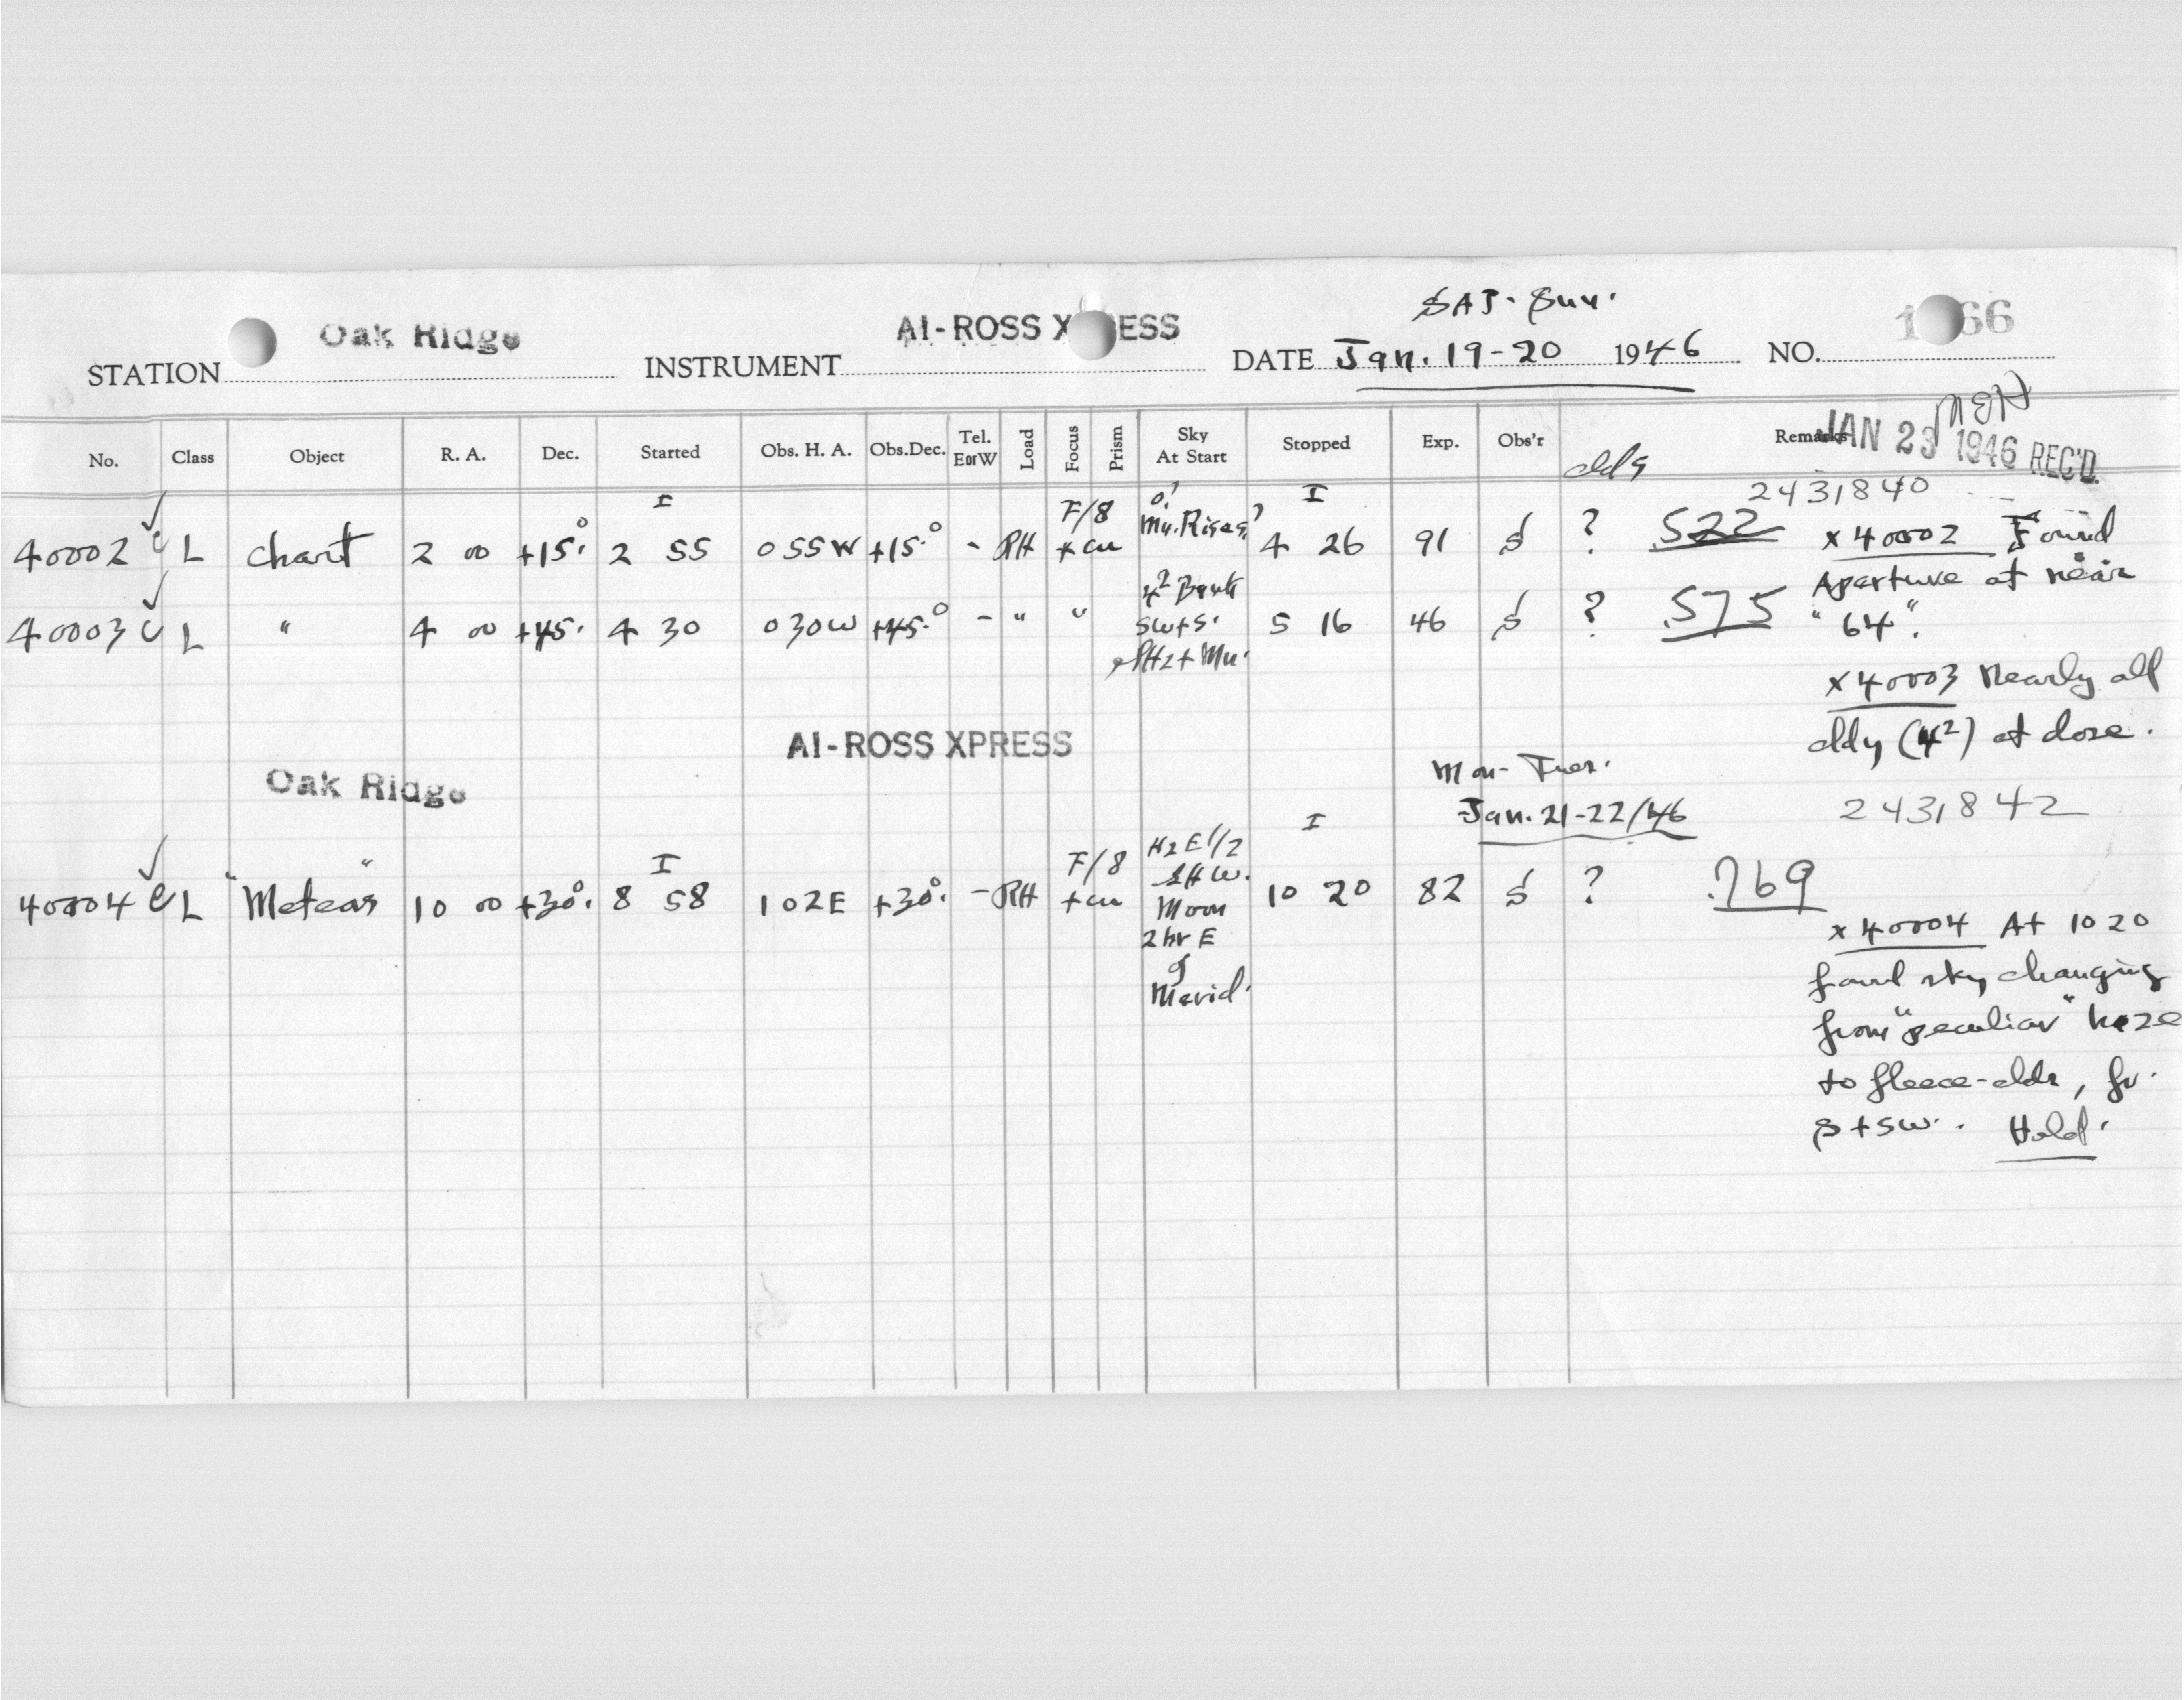 SAT - Sun.
STATION Oak Ridge INSTRUMENT AI-ROSS X ESS DATE Jan. 19-20 1946 NO. 1 66
JAN 23 1946 REC'D.
No. Class Object R. A. Dec. Started Obs. H. A. Obs.Dec. Tel. E or W Load Focus Prism Sky At Start Stopped Exp. Obs'r clds Remarks
2431840
40002 L Chart 2 00 +15° 2 I 55 0 55 W +15° - RH F/8 + cu 0! Mn. Rises 4 I 26 91 S ? .522
x 40002 Found
Aperture at near
"64".
40003 L " 4 00 +45. 4 30 0 30 W +45° - " " 4² Bank SW+S. Hz + Mn. 5 16 46 S ? .575
x 40003 Nearly all
cldy (4²) at close.
AI-ROSS XPRESS
Oak Ridge
Mon - Tues.
Jan. 21-22/46
2431842
40004 L "Meteors" 10 00 +30° 8 I 58 1 02 E +30° - RH F/8 + cu Hz E 1/2 W. Moon 2 hr E of Merid. 10 I 20 82 S ? .769
x 40004 At 10 20
found sky changing
from "peculiar" haze
to fleece-clds, fr.
S + SW. Hold.